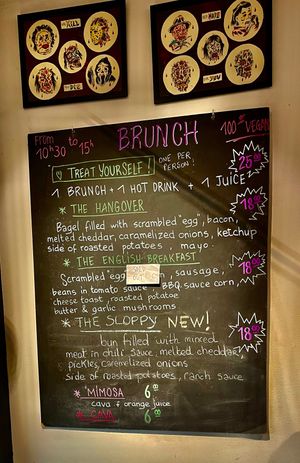 BRUNCH
From 10h30 to 15h
100% VEGAN
TREAT YOURSELF!
ONE PER PERSON!
25.00
1 BRUNCH + 1 HOT DRINK + 1 JUICE
* THE HANGOVER
Bagel filled with scrambled "egg", bacon,
melted cheddar, caramelized onions, ketchup
side of roasted potatoes, mayo.
* THE ENGLISH BREAKFAST
Scrambled "egg", sausage,
beans in tomato sauce, BBQ sauce corn,
cheese toast, roasted potatoe
butter & garlic mushrooms
* THE SLOPPY NEW!
18.00
bun filled with minced
meat in chili sauce, melted cheddar,
pickles, caramelized onions
side of roasted potatoes, ranch sauce
* MIMOSA 6
cava + orange juice
* CAVA 6